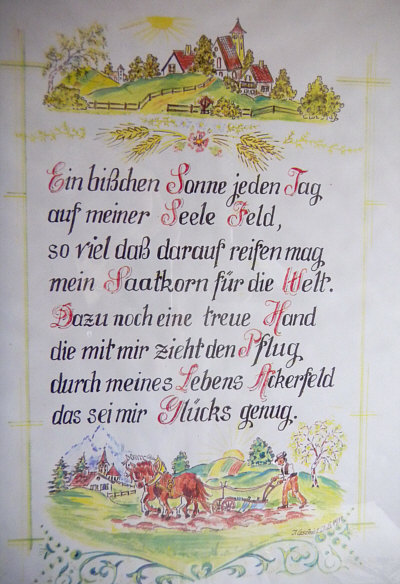 Ein bißchen Sonne jeden Tag
auf meiner Seele Feld,
so viel daß darauf reifen mag
mein Saatkorn für die Welt.
Dazu noch eine treue Hand
die mit mir zieht den Pflug
durch meines Lebens Ackerfeld
das sei mir Glücks genug.